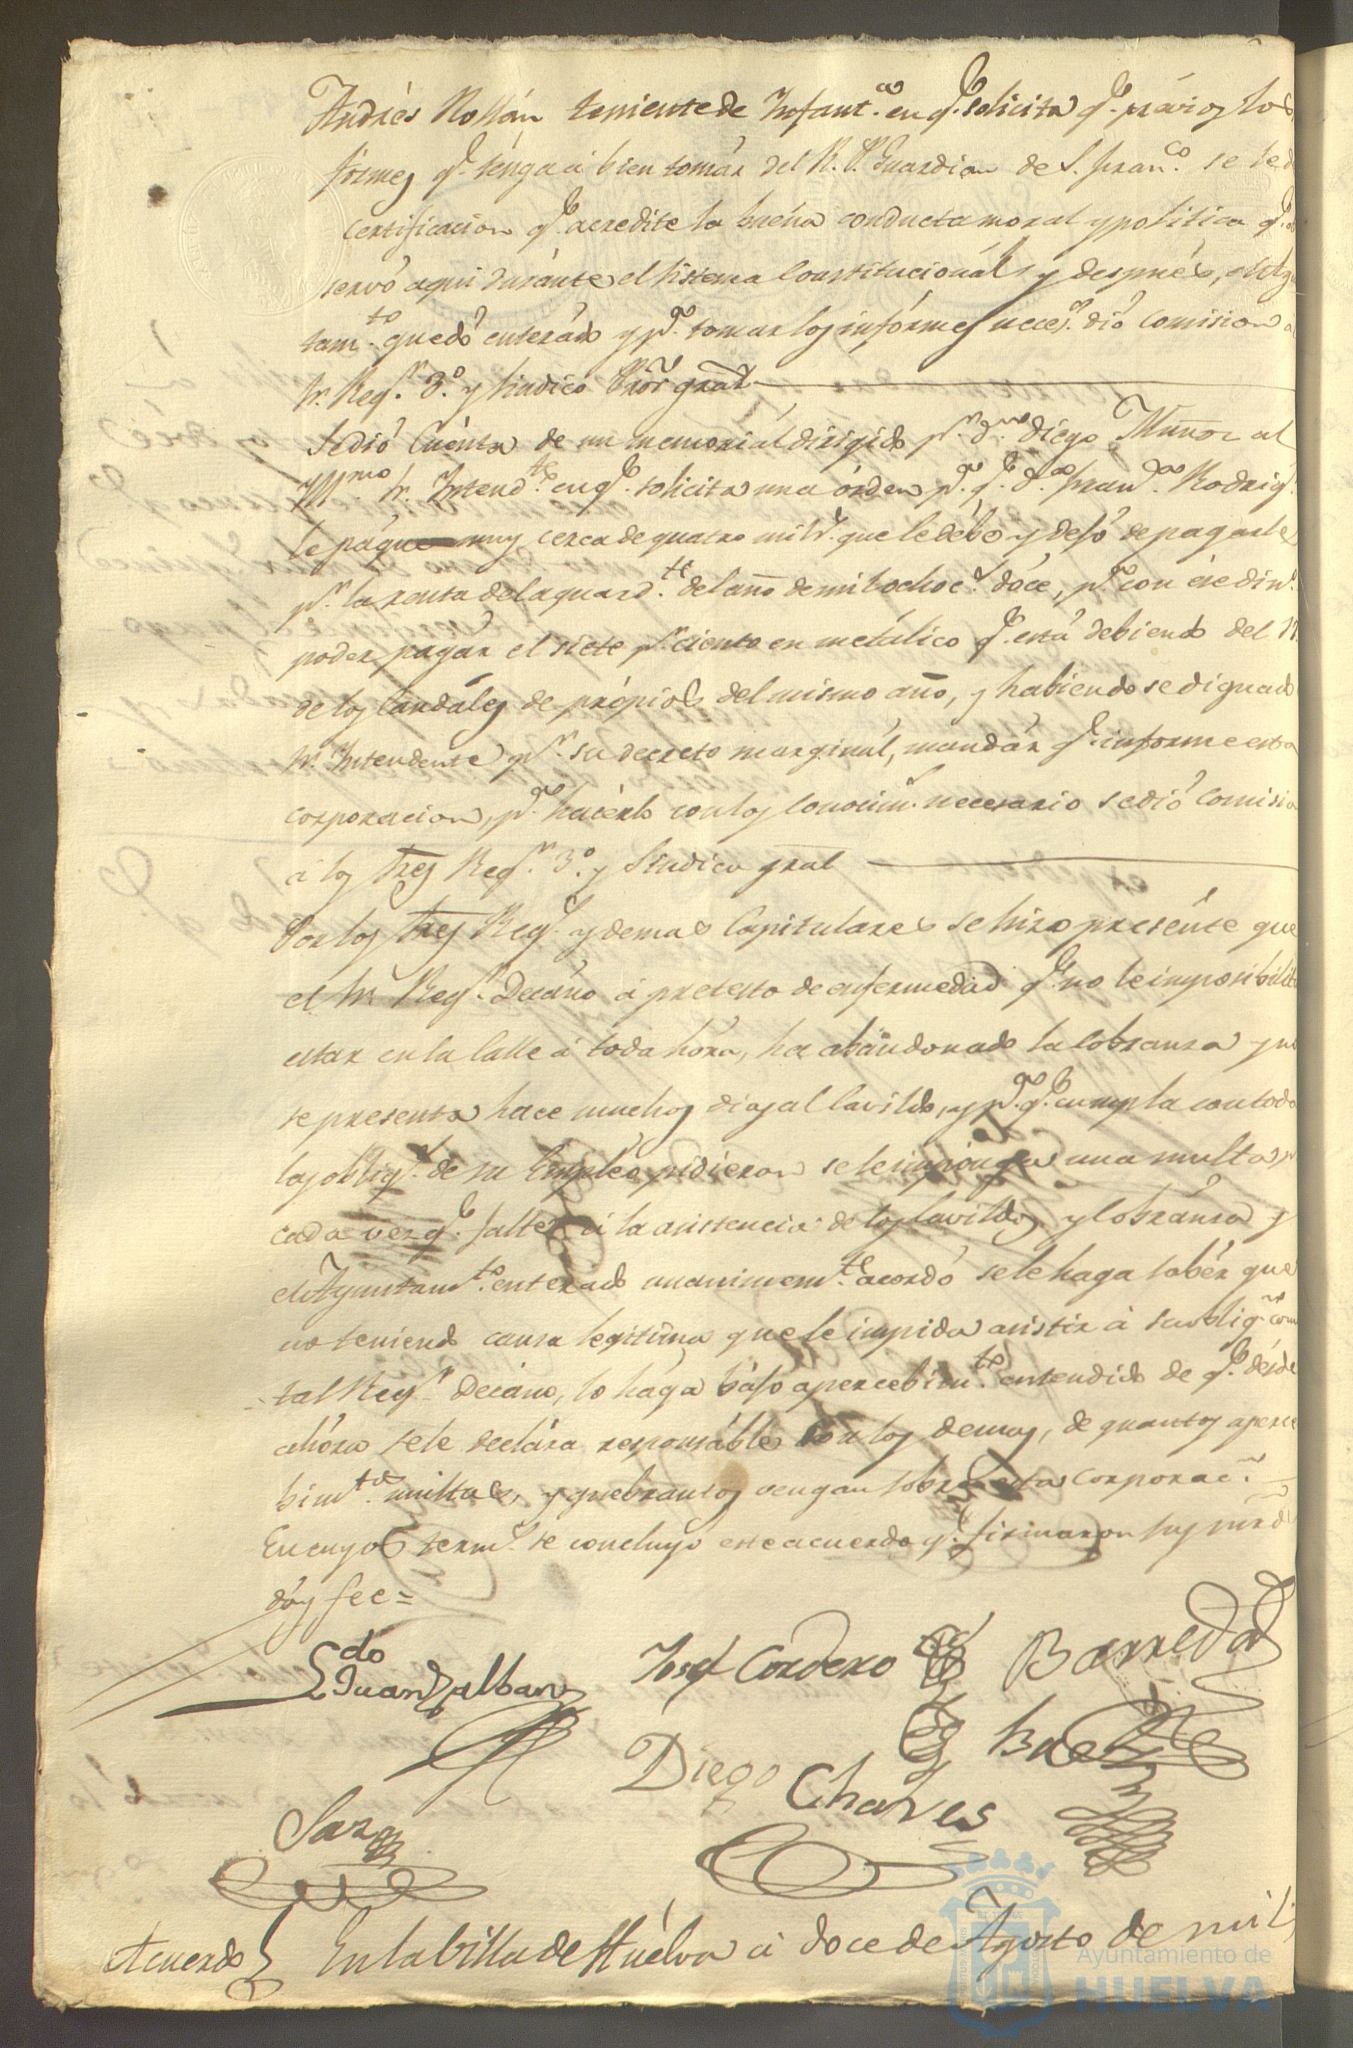 Andrés Roldán teniente de Infant.ª en q.e solicita q.e prévios los
fórmes q.e tenga á bien tomár del R. P. Guardian de S. Fran.co se le
certificacion q.e acredite la buena conducta moral y politica q.e
servó aqui duránte el sistema Constitucionál y después, el Ayun
tam.to quedó enterádo y p.a tomar los infórmes neces.s dió comision
Sr. Reg.r 3.º y Sindico Pror gral
Se dió Cuénta de un memoriál dirigido p.r d.n Diego Munoz al
Yll.mo Sr. Intend.te en q.e solicita una órden p.a q.e d.a Fran.ca Rodrig.
le páque muy cerca de quatro mil r.s que le debe y dejó de pagarle
p.r la renta del aguard.te del año de mil ochoc.s dóce, p.a con ese din.
poder pagár el siete p.r ciento en metálico q.e está debiendo del 17
de los Caudáles de própios del mismo año, y habiendose dignado
Sr. Intendente p.r su decreto marginál, mandár q.e informe esta
corporacion, p.a hacérlo con los conocim.s necesario se dió comisio
á los Sres Reg.r 3.º y Sindico gral
Por los Sres Reg.s y demas Capitulares se hizo presénte que
el Sr. Reg.r Decáno á pretesto de enfermedad q.e no le imposibilit
estar en la Calle á toda hóra, ha abandonado la cobranza y no
se presenta hace muchos dias al Cavildo, y p.a q.e cumpla con todo
las oblig.s de su Empléo pidieron se le impónga una multa p
cada vez q.e falte á la asistencia de los Cavildos y Cobránza y
el Ayuntam.to enterado unanimem.te acordó se le haga sabér que
no teniendo causa legitima que le impida asistir á su oblig.n com
tal Reg.r Decáno, lo hága bájo apercebim.to entendido de q.e désde
ahóra se le declára responsáble con los demas, de quantos aperce
bim.tos multas, y quebrantos vengan sobre esta corporac.n
En cuyos term.s se concluyó este acuerdo q.e firmaron sus mrds
dóy fee =
Ldo Juan Zalban
Josef Cordero
Barreda
Diego Chaves
Baez
Saz
Acuerdo
En la billa de Huélva á doce de Agosto de mil
Ayuntamiento de
HUELVA